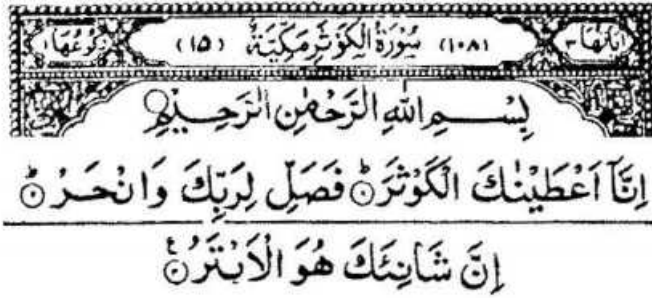 اٰیَاتُهَا ۳ (۱۰۸) سُوْرَةُ الْكَوْثَرِ مَكِّيَّةٌ (۱۵) رُكُوْعُهَا ۱
بِسْمِ اللّٰهِ الرَّحْمٰنِ الرَّحِيْمِ
اِنَّاۤ اَعْطَيْنٰكَ الْكَوْثَرَ ۱ؕ فَصَلِّ لِرَبِّكَ وَانْحَرْ ۲ؕ
اِنَّ شَانِئَكَ هُوَ الْاَبْتَرُ ۳ع